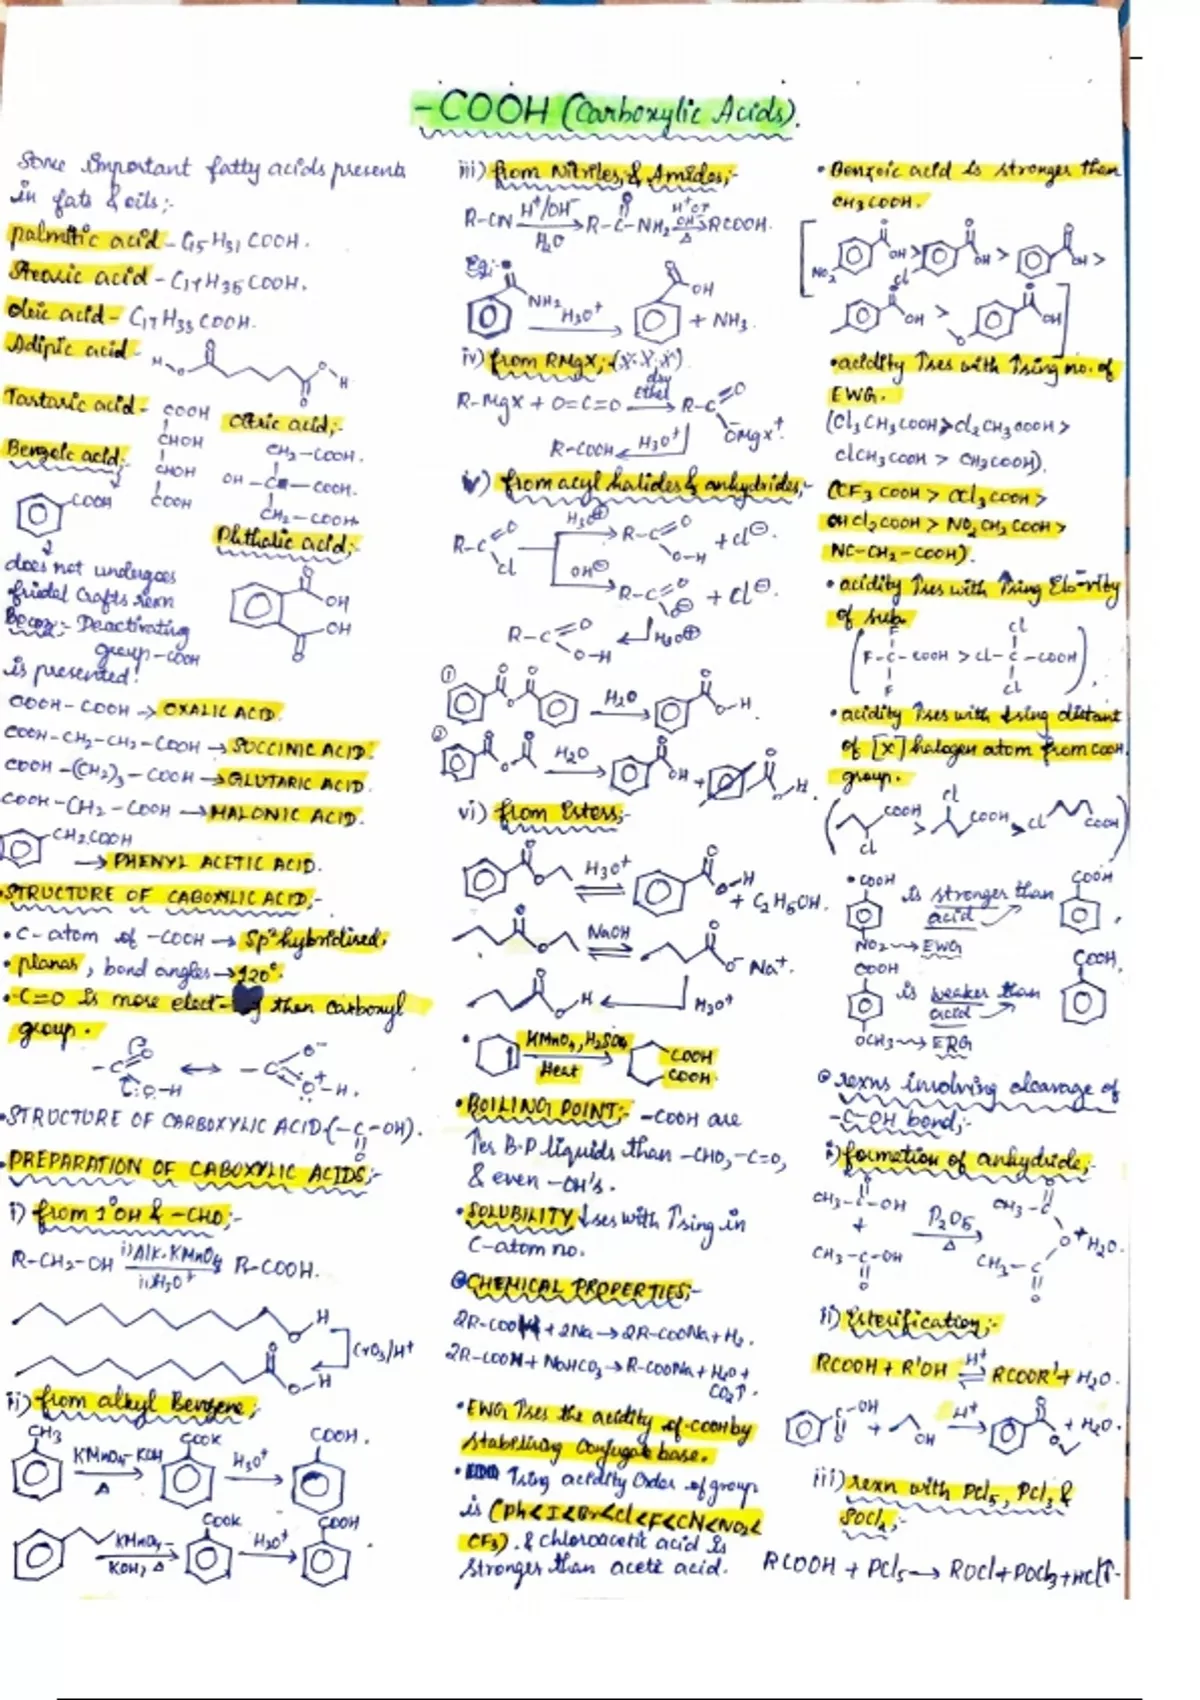 -COOH (Carboxylic Acids).
Some Important fatty acids presents
in fats & oils;-
palmitic acid - C15 H31 COOH.
Stearic acid - C17 H35 COOH.
Oleic acid - C17 H33 COOH.
Adipic acid -
Tartaric acid -
COOH
CHOH
CHOH
COOH
Citric acid;-
CH2-COOH.
OH - C - COOH.
CH2-COOH
Benzoic acid;-
COOH
does not undergoes
friedel Crafts rexn
Becoz:- Deactivating
group-COOH
is presented!
Phthalic acid;-
OH
OH
COOH-COOH → OXALIC ACID.
COOH-CH2-CH2-COOH → SUCCINIC ACID.
COOH-(CH2)3-COOH → GLUTARIC ACID.
COOH-CH2-COOH → MALONIC ACID.
CH2COOH
→ PHENYL ACETIC ACID.
•STRUCTURE OF CABOXYLIC ACID;-
•C-atom of -COOH → Sp2 hybridised.
• planar, bond angles → 120°.
•-C=O is more elect- than Carboxyl
group.
•STRUCTURE OF CARBOXYLIC ACID (-C-OH).
O
•PREPARATION OF CABOXYLIC ACIDS;-
i) from 1°OH & -CHO;-
R-CH2-OH i)Alk. KMnO4 ii)H3O+ R-COOH.
CrO3/H+
ii) from alkyl Benzene;-
CH3 KMnO4-KOH Δ COOK H3O+ COOH.
KMnO4- KOH, Δ COOK H3O+ COOH
iii) from Nitriles, & Amides;-
R-CN H+/OH- H2O R-C-NH2 H+ or OH- Δ RCOOH.
Eg:-
NH2 H3O+ OH + NH3.
iv) from RMgX;
R-MgX + O=C=O dry Ether R-C=O
OMgX+
R-COOH H3O+
v) from acyl halides & anhydrides;-
R-C=O Cl H3O+ R-C=O O-H + Cl-.
OH- R-C=O O- + Cl-.
R-C=O O-H H3O+
① H2O O-H.
② H2O OH + H.
vi) from Esters;-
H3O+ O-H + C2H5OH.
NaOH O- Na+.
H H3O+
KMnO4, H2SO4 Heat COOH COOH
•BOILING POINT;- -COOH are
↑es B.P liquids than -CHO, -C=O,
& even -OH's.
•SOLUBILITY ↓ses with ↑sing in
C-atom no.
CHEMICAL PROPERTIES;-
2R-COOH + 2Na → 2R-COONa + H2.
2R-COOH + NaHCO3 → R-COONa + H2O +
CO2↑.
•EWG ↑ses the acidity of -COOH by
stabilising Conjugate base.
• ↑sing acidity Order of group
is (Ph<I<Br<Cl<F<CN<NO2<
CF3). & chloroacetic acid is
stronger than acetic acid.
•Benzoic acid is stronger than
CH3COOH.
NO2 OH > Cl OH > OH >
OH > O OH
•acidity ↑ses with ↑sing no. of
EWG.
(Cl3CH3COOH>Cl2CH3COOH>
ClCH3COOH > CH3COOH).
(CF3 COOH > CCl3COOH >
CHCl2COOH > NO2CH2COOH >
NC-CH2-COOH).
•acidity ↑ses with ↑sing
of sub.
F
F-C-COOH > Cl-C-COOH
F
Cl
Cl
•acidity ↑ses with ↓sing distant
of [X] halogen atom from COOH
group.
COOH Cl > Cl COOH > Cl COOH
•COOH is stronger than acid COOH
NO2 → EWG
COOH is weaker than acid COOH.
OCH3 → ERG
rexns involving cleavage of
-C-OH bond;-
i) formation of anhydride;-
CH3-C-OH + CH3-C-OH P2O5 Δ CH3-C O CH3-C + H2O.
ii) Esterification;-
RCOOH + R'OH H+ RCOOR' + H2O.
C-OH + OH H+ O + H2O.
iii) rexn with PCl5, PCl3 &
SOCl2;-
RCOOH + PCl5 → ROCl + POCl3 + HCl↑.